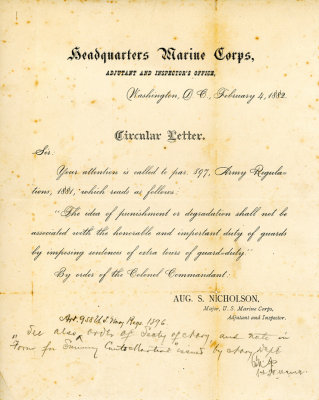 Headquarters Marine Corps,
ADJUTANT AND INSPECTOR'S OFFICE,
Washington, D. C., February 4, 1882.
Circular Letter.
Sir:
Your attention is called to par. 597, Army Regula-
tions, 1881, which reads as follows:
"The idea of punishment or degradation shall not be
associated with the honorable and important duty of guards
by imposing sentences of extra tours of guard-duty."
By order of the Colonel Commandant:
AUG. S. NICHOLSON,
Major, U. S. Marine Corps,
Adjutant and Inspector.
Art. Navy Regs. 1896
See also order of Secty of Navy and note in
Form for Summary Courts Martial issued by Navy Dept